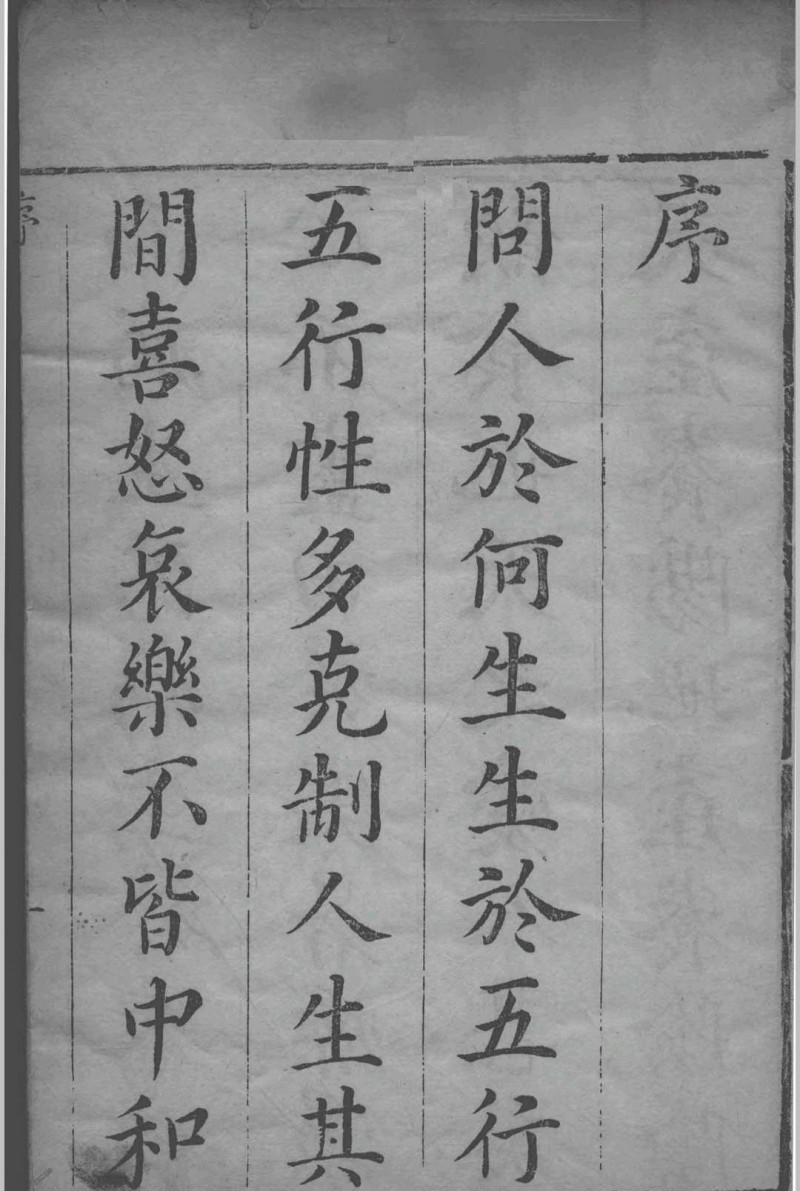 序
問人於何生生於五行
五行性多克制人生其
間喜怒哀樂不皆中和
序